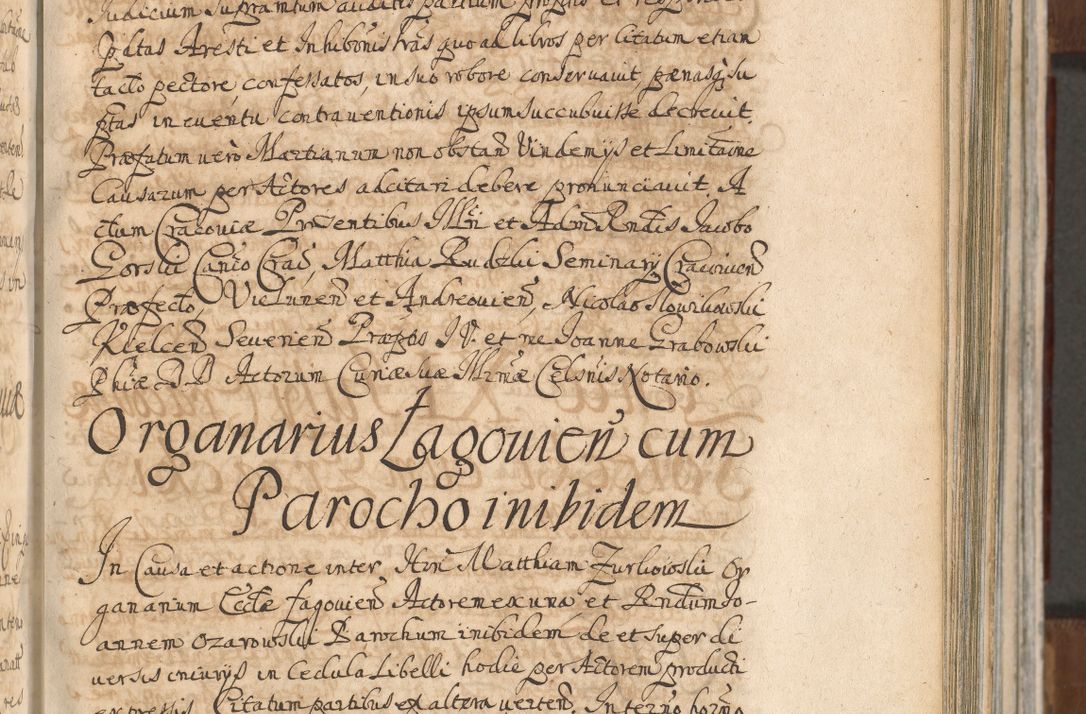 Judicium Supramtum auditis partium
p̱datas Aresti et Inhibonis trãs quo ad libros per Citatum etiam
tacto pectore confessatos, in suo robore conservavit, pænasq̃ su
p̱tas in eventu contraventionis ipsum succubuisse decrevit.
Præfatum verò Martianum non obstan̄ Vindemijs et Limitãone
Causarum per Actores adcitari debere pronunciavit. A
ctum Cracoviæ Præsentibus Illr̃i et Adm̃ Rndis Jacobo
Gorski Can̄co Crac̄, Matthia Rudzki Seminarij Cracovien̄
Præfecto, Vielunen̄ et Andreovien̄, Nicolao Slowikowski
Kielcen̄ Severien̄ Præp̱os J.V. et me Joanne Grabowski
Phiæ D.D Actorum Curiæ Suæ Illr̃mæ Celsnis Notario.
Organarius Łagovien̄ cum
Parocho inibidem
In Causa et actione inter Hon̄ Matthiam Zurkowski Or
ganarium Ecclæ Łagovien̄ Actorem ex una et Rndum Jo-
annem Ozarowski Parochum inibidem de et super di
versis iniurijs in Cedula Libelli hodie per Actorem producti
expressis Citatum partibus ex altera verten̄. In termo horño